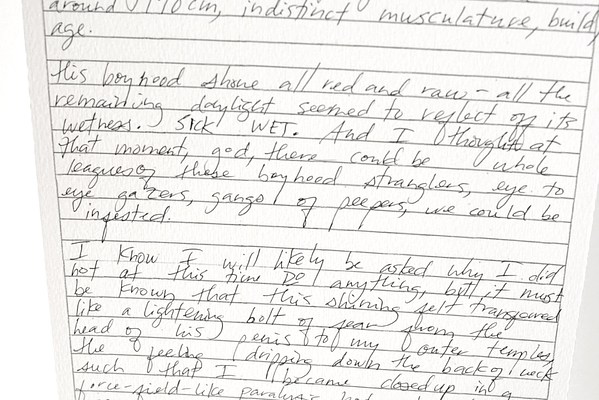 around 170cm, indistinct musculature, build,
age.
His boyhood shone all red and raw – all the
remaining daylight seemed to reflect off its
wetness. SICK WET. And I thought at
that moment, god, there could be whole
leagues of these boyhood stranglers, eye to
eye gazers, gangs of peepers, we could be
infested.
I know I will likely be asked why I did
not at this time DO anything, but it must
be known that this shining self transferred
like a lightening bolt of fear from the
head of his penis to my outer temples,
the feeling dripping down the back of neck
such that I became closed up in a
force-field-like paralysis